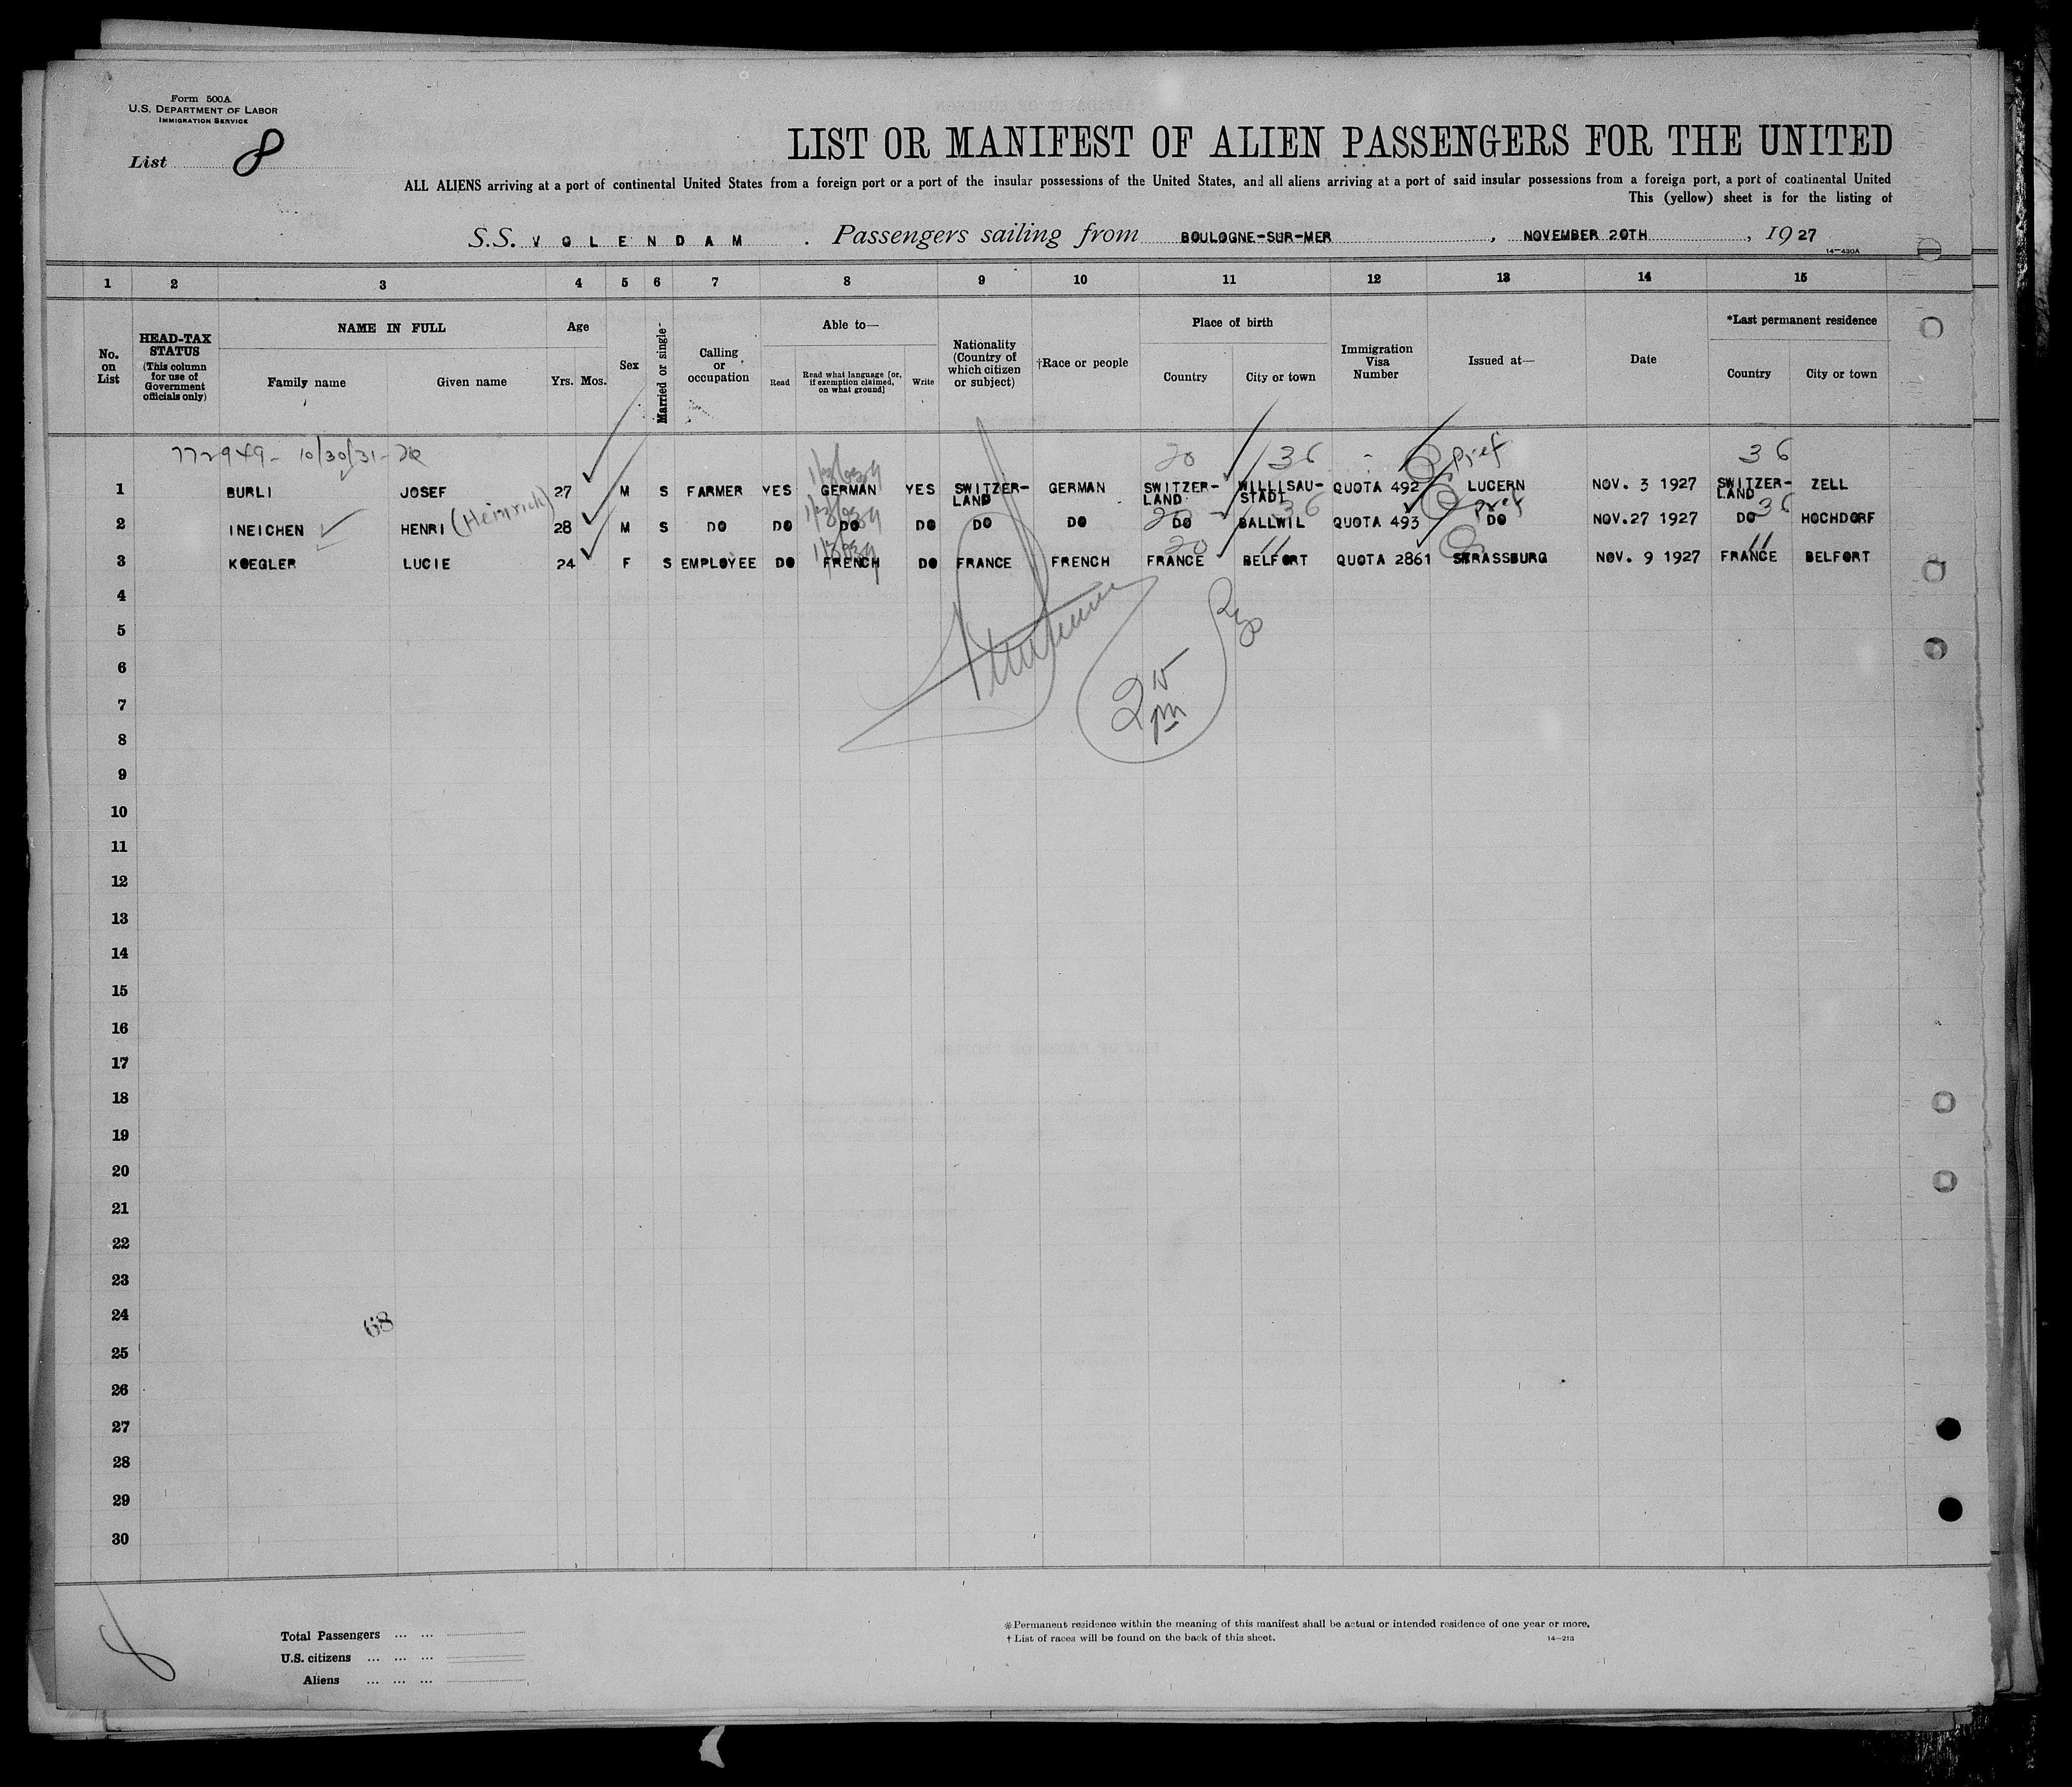 Form 500A
U.S. DEPARTMENT OF LABOR
IMMIGRATION SERVICE
List 8
LIST OR MANIFEST OF ALIEN PASSENGERS FOR THE UNITED
ALL ALIENS arriving at a port of continental United States from a foreign port or a port of the insular possessions of the United States, and all aliens arriving at a port of said insular possessions from a foreign port, a port of continental United
This (yellow) sheet is for the listing of
S.S. VOLENDAM . Passengers sailing from BOULOGNE-SUR-MER , NOVEMBER 20TH , 1927
14—430A
1 2 3 4 5 6 7 8 9 10 11 12 13 14 15
No. on List
HEAD-TAX STATUS (This column for use of Government officials only)
NAME IN FULL
Family name Given name
Age
Yrs. Mos.
Sex
Married or single
Calling or occupation
Able to—
Read Read what language [or, if exemption claimed, on what ground] Write
Nationality (Country of which citizen or subject)
†Race or people
Place of birth
Country City or town
Immigration Visa Number
Issued at—
Date
*Last permanent residence
Country City or town
772949 - 10/30/31 - 20 36 Pref 36
1 BURLI JOSEF 27 M S FARMER YES GERMAN YES SWITZER-LAND GERMAN SWITZER-LAND WILLISAU-STADT QUOTA 492 LUCERN NOV. 3 1927 SWITZER-LAND ZELL
20 36 Pref 36
2 INEICHEN HENRI (Heinrich) 28 M S DO DO DO DO DO DO DO BALLWIL QUOTA 493 DO NOV.27 1927 DO HOCHDORF
20 11 11
3 KOEGLER LUCIE 24 F S EMPLOYEE DO FRENCH DO FRANCE FRENCH FRANCE BELFORT QUOTA 2861 STRASSBURG NOV. 9 1927 FRANCE BELFORT
4
5
6
7
2 15 pm
8
9
10
11
12
13
14
15
16
17
18
19
20
21
22
23
24
68
25
26
27
28
29
30
Total Passengers ... ...
U.S. citizens ... ... ...
Aliens ... ... ...
*Permanent residence within the meaning of this manifest shall be actual or intended residence of one year or more.
† List of races will be found on the back of this sheet.
14—213